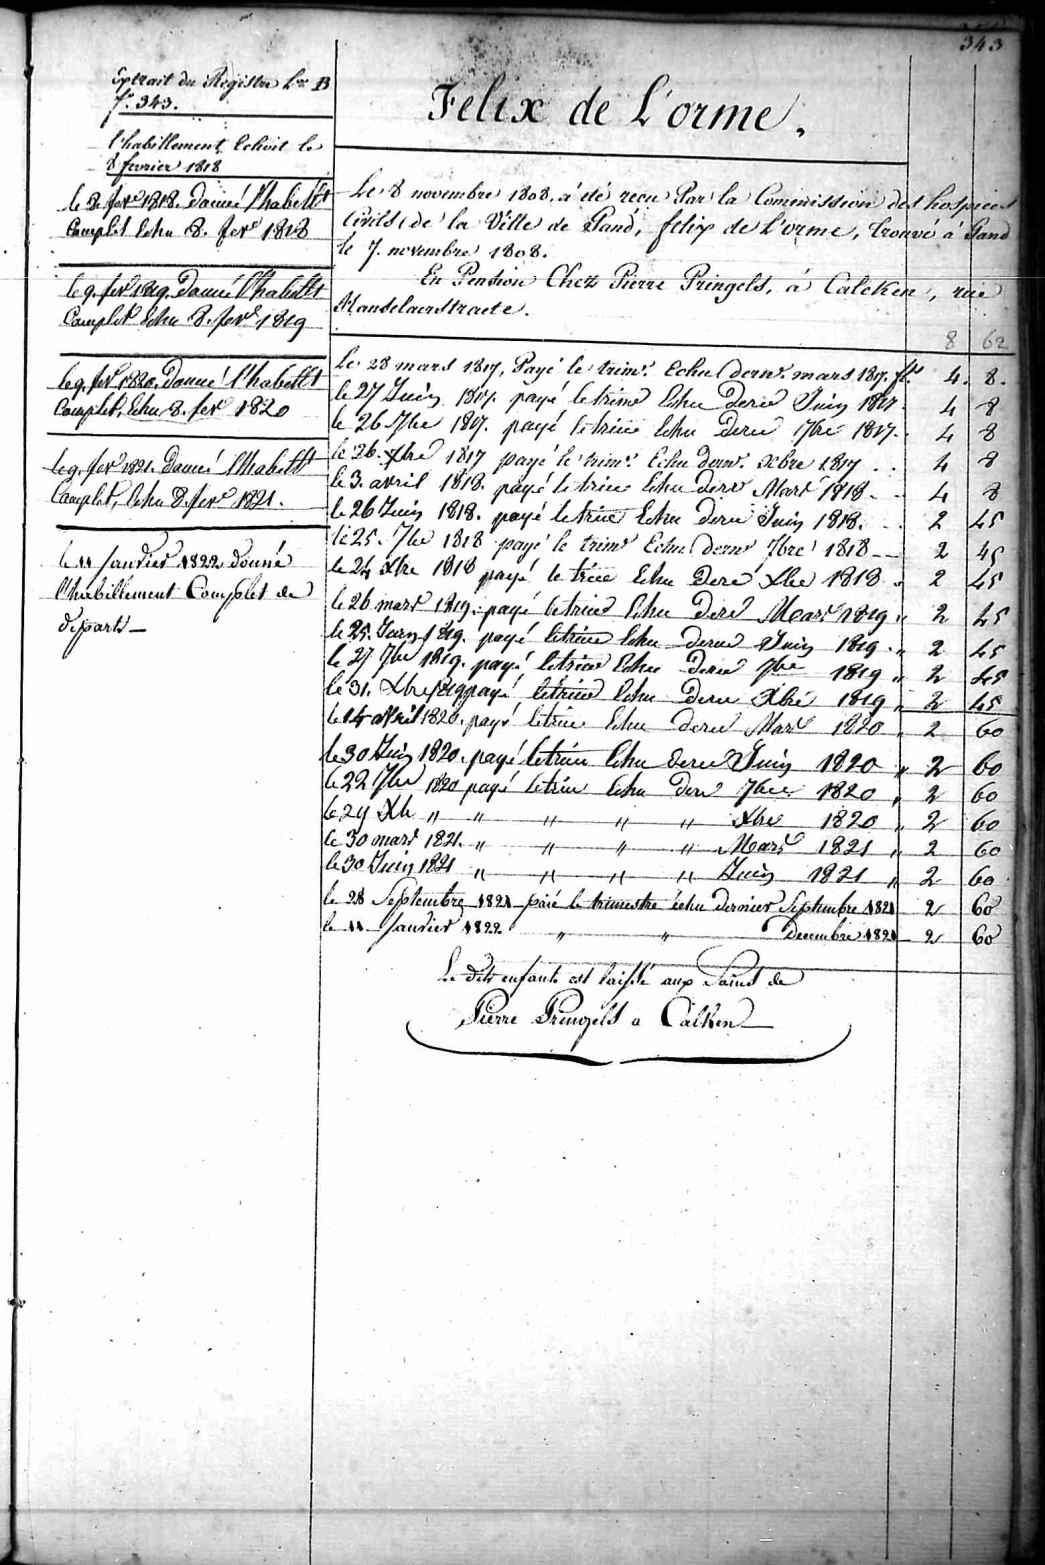 343
Extrait du Registre Lre B
f° 343.
l'habillement Echoit le
8 fevrier 1818
le 8 fevr 1818. donné l'habellt
Complet Echu 8. fevr 1818
le 9. fevr 1819. donné l'habellt
Complet Echu 8. fevr 1819
le 9. fevr 1820. donné l'habellt
Complet, Echu 8. fevr 1820
le 9. fevr 1821. donné l'habellt
Complet, Echu 8. fevr 1821.
le 11 Janvier 1822 donné
l'habillement Complet de
départ
Felix de L'orme.
Le 8 novembre 1808, a été recu Par la Commission des hospices
Civils, de la Ville de Gand, felix de L'orme, trouvé à Gand
le 7. novembre 1808.
En Pension Chez Pierre Pringels, à Calcken, rue
Manselaerstraete.
8 62
Le 28 mars 1817, Payé le trimr. Echu dernr. mars 1817. fls 4. 8.
le 27 Juin 1817. payé le trime Echu derne Juin 1817 4 8
le 26 7bre 1817. payé le trime Echu derne 7bre 1817. 4 8
le 26. Xbre 1817 payé le trimr. Echu dernr. Xbre 1817 . . 4 8
le 3. avril 1818. payé le trime Echu dernr Mars 1818 4 8
le 26 Juin 1818. payé le trime Echu derne Juin 1818. 2 45
le 25. 7bre 1818 payé le trimr Echu dernr 7bre 1818 2 45
le 24 Xbre 1818 payé le trime Echu derne Xbre 1818 " 2 45
le 26 mars 1819. payé le trime Echu derne Mars 1819 " 2 45
le 25. Juin 1819. payé le trime Echu derne Juin 1819 " 2 45
le 27 7bre 1819. payé le trime Echu derne 7bre 1819 " 2 45
le 31. Xbre 1819 payé le trime Echu derne Xbre 1819 " 2 45
le 14 avril 1820. payé le trime Echu derne Mars 1820 " 2 60
le 30 Juin 1820. payé le trime Echu derne Juin 1820 " 2 60
le 22 7bre 1820 payé le trime Echu derne 7bre 1820 " 2 60
le 29 Xbre " " " " " Xbre 1820 " 2 60
le 30 mars 1821. " " " " Mars 1821 " 2 60
le 30 Juin 1821 " " " " Juin 1821 " 2 60
le 28 Septembre 1821 paié le trimestre échu dernier Septembre 1821 2 60
le 11 Janvier 1822 " " Decembre 1821 2 60
Le dit enfant est laissé aux Soins de
Pierre Pringels a Calken